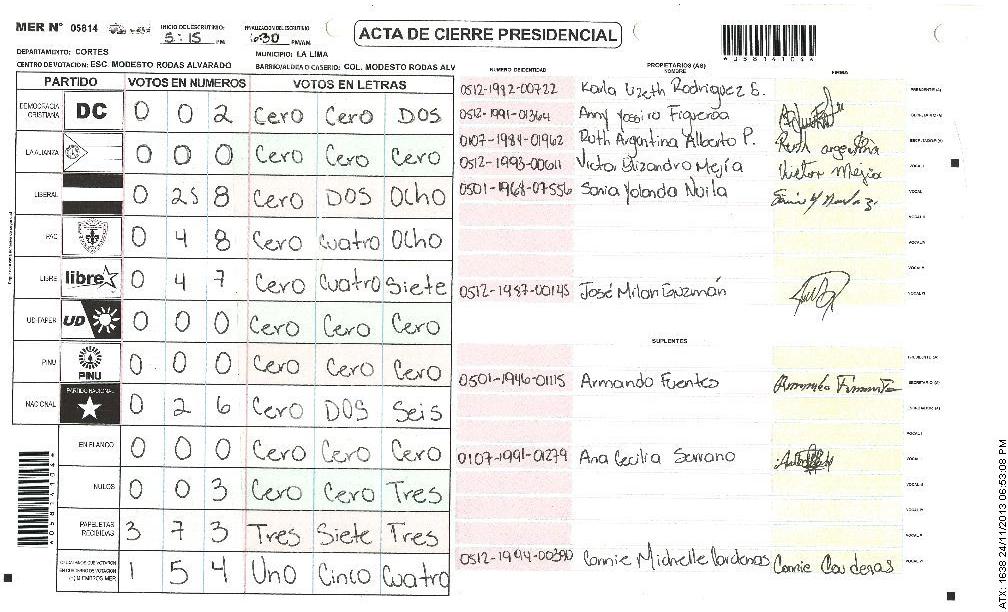 MER N° 05814
INICIO DEL ESCRUTINIO
5:15 PM
FINALIZACION DEL ESCRUTINIO
6:30 PM/AM
ACTA DE CIERRE PRESIDENCIAL
*058141064
DEPARTAMENTO: CORTES
MUNICIPIO: LA LIMA
CENTRO DE VOTACION: ESC. MODESTO RODAS ALVARADO
BARRIO/ALDEA O CASERIO: COL. MODESTO RODAS ALV
PARTIDO VOTOS EN NUMEROS VOTOS EN LETRAS
DEMOCRACIA CRISTIANA DC 0 0 2 Cero Cero Dos
LA ALIANZA 0 0 0 Cero Cero Cero
LIBERAL 0 2 8 Cero Dos Ocho
PAC 0 4 8 Cero Cuatro Ocho
LIBRE libre 0 4 7 Cero Cuatro Siete
UD-FAPER UD 0 0 0 Cero Cero Cero
PINU PINU 0 0 0 Cero Cero Cero
NACIONAL PARTIDO NACIONAL 0 2 6 Cero Dos Seis
EN BLANCO 0 0 0 Cero Cero Cero
NULOS 0 0 3 Cero Cero Tres
PAPELETAS RECIBIDAS 3 7 3 Tres Siete Tres
1 5 4 Uno Cinco Cuatro
NUMERO DE IDENTIDAD PROPIETARIOS (AS) NOMBRE FIRMA
0512-1992-00722 Karla Lizeth Rodriguez S. PRESIDENTE (A)
0512-1991-01364 Anny Yossira Figueroa SECRETARIO (A)
0107-1984-01962 Ruth Argentina Alberto P. Ruth argentina ESCRUTADOR (A)
0512-1993-00611 Victor Elizandro Mejía Victor Mejia VOCAL I
0501-1968-07556 Sonia Yolanda Nuila VOCAL
VOCAL
VOCAL
VOCAL
0512-1987-00145 José Milan Guzmán VOCAL
SUPLENTES
PRESIDENTE (A)
0501-1946-01115 Armando Fuentes SECRETARIO (A)
ESCRUTADOR (A)
VOCAL I
0107-1991-01279 Ana Cecilia Serrano VOCAL
VOCAL
VOCAL
VOCAL
0512-1994-00390 Connie Michelle Cardenas Connie Cardenas VOCAL
ATX: 1638 24/11/2013 06:53:08 PM